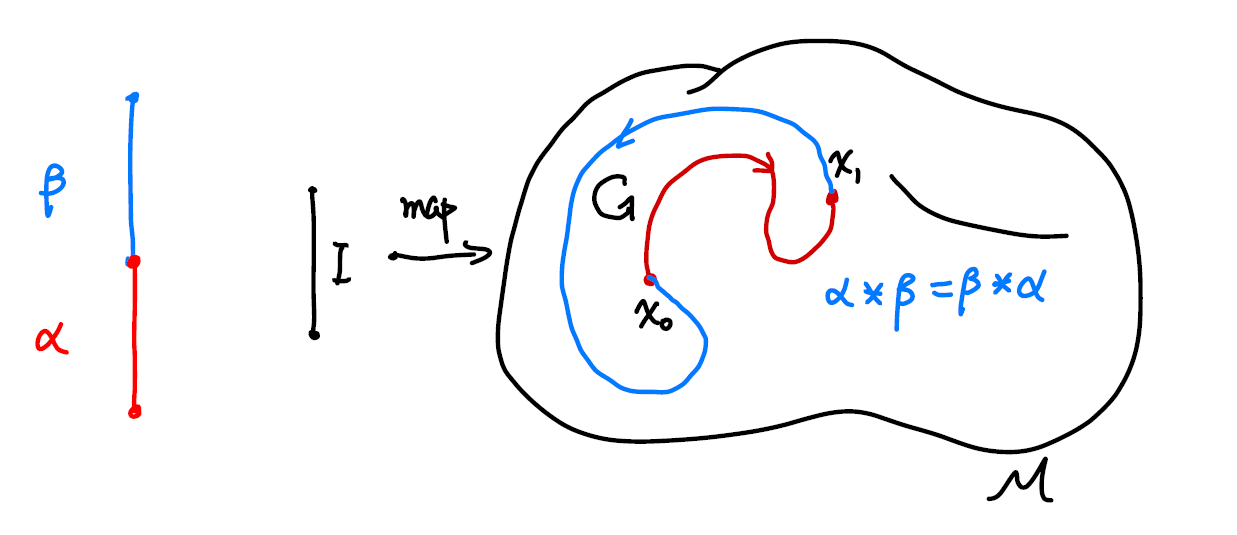 β
α
I
map
G
x₁
x₀
α * β = β * α
M